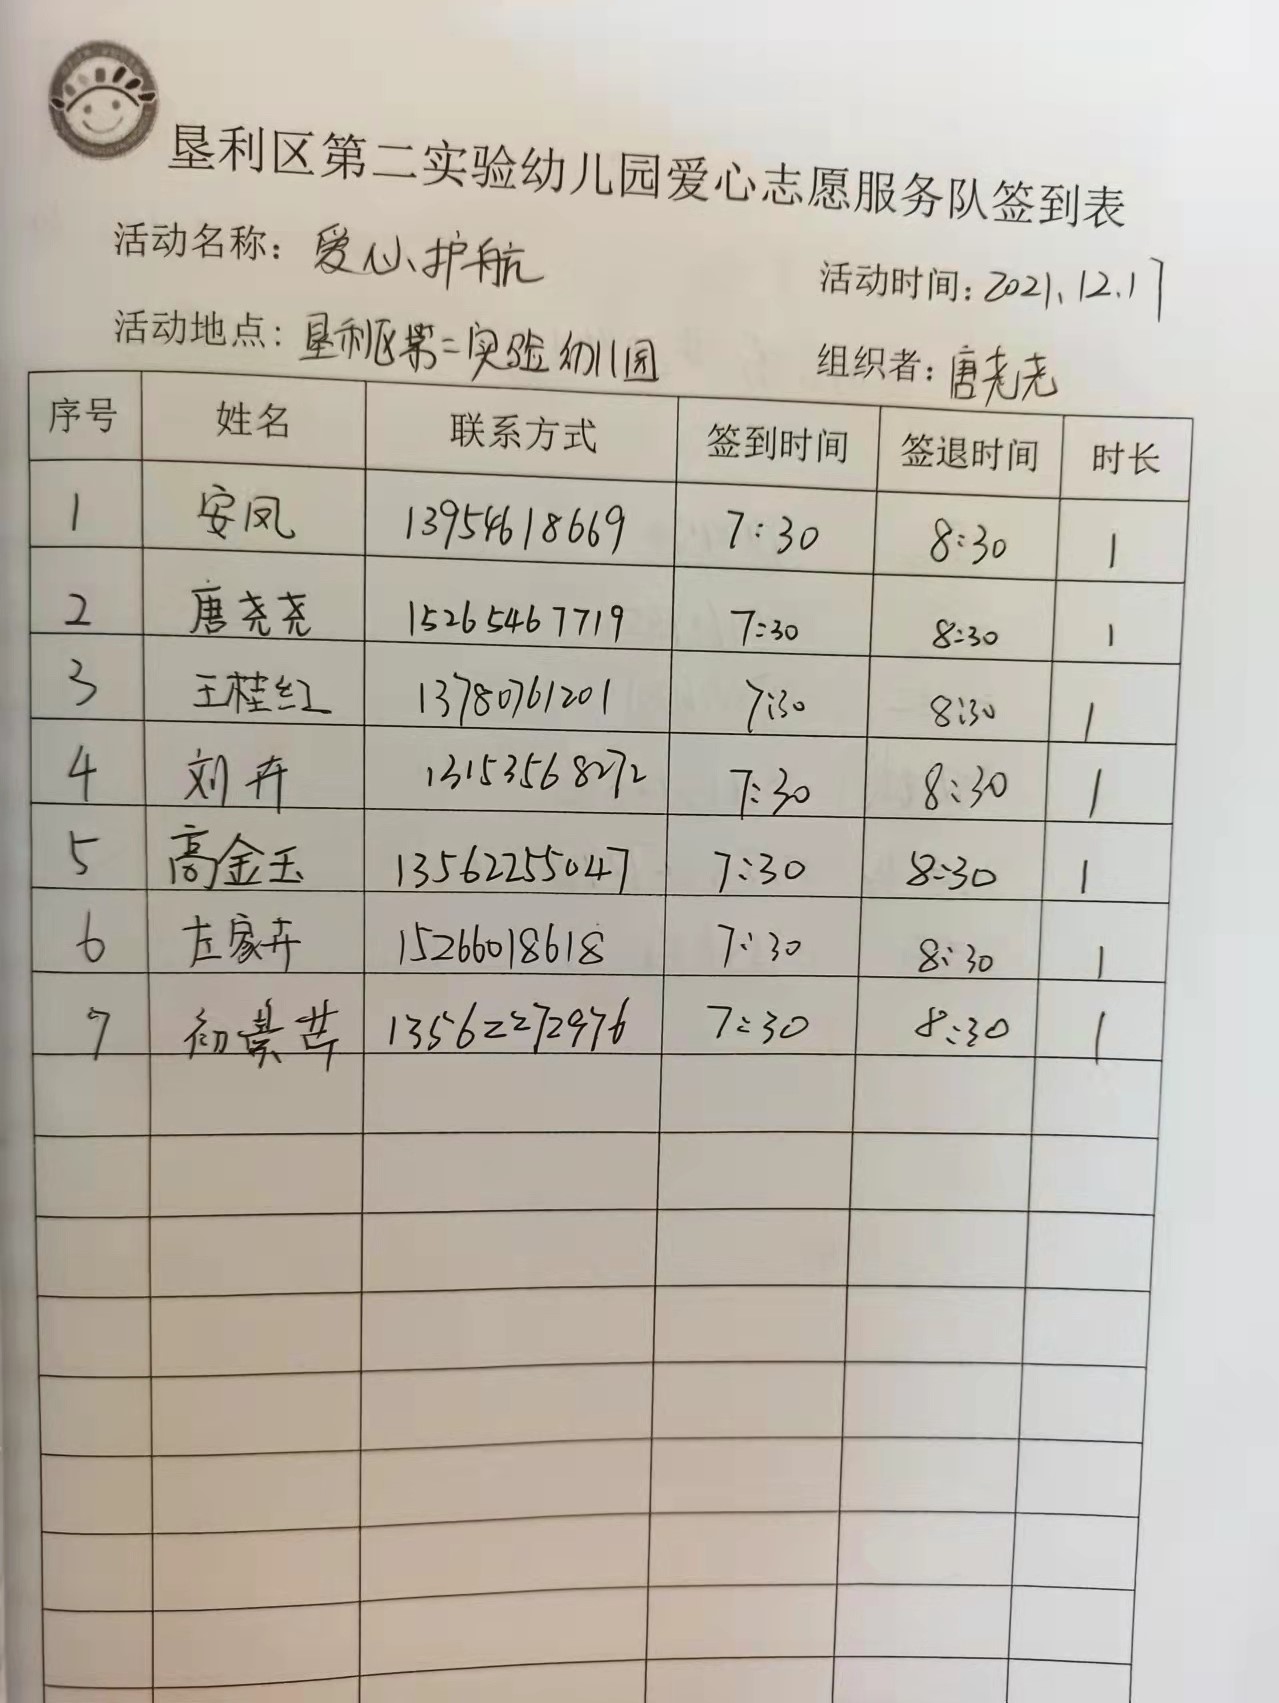 垦利区第二实验幼儿园爱心志愿服务队签到表
活动名称：爱心护航 活动时间：2021.12.17
活动地点：垦利区第二实验幼儿园 组织者：唐尧尧
序号 姓名 联系方式 签到时间 签退时间 时长
1 安凤 13954618669 7:30 8:30 1
2 唐尧尧 15265467719 7:30 8:30 1
3 王桂红 13780761201 7:30 8:30 1
4 刘卉 13153568272 7:30 8:30 1
5 高金玉 13562255047 7:30 8:30 1
6 左家卉 15266018618 7:30 8:30 1
7 13562272976 7:30 8:30 1